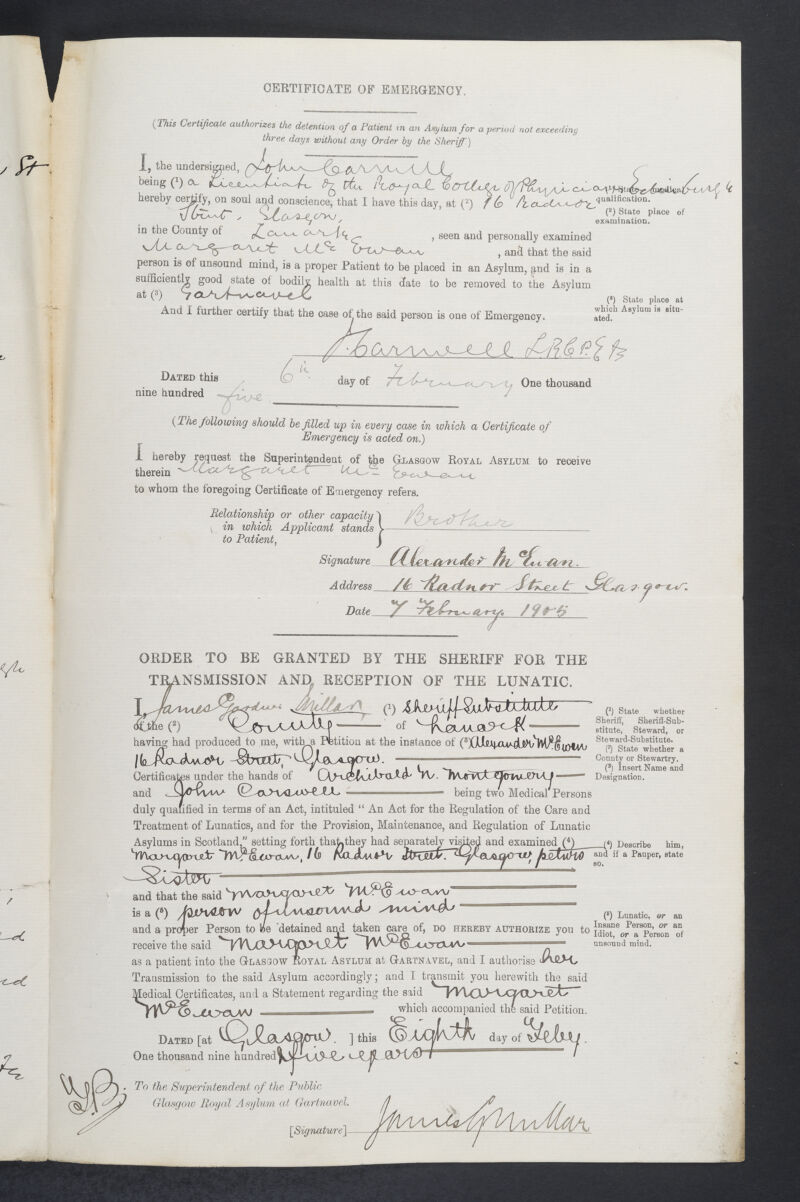 St
CERTIFICATE OF EMERGENCY.
(This Certificate authorizes the detention of a Patient in an Asylum for a period not exceeding
three days without any Order by the Sheriff)
I, the undersigned, John Carswell
being (¹) a Licentiate of the Royal College of Physicians Edinburgh
hereby certify, on soul and conscience, that I have this day, at (²) 16 Radnor
qualification.
(²) State place of
examination.
Street, Glasgow,
in the County of Lanark, seen and personally examined
Margaret Mc Ewan, and that the said
person is of unsound mind, is a proper Patient to be placed in an Asylum, and is in a
sufficiently good state of bodily health at this date to be removed to the Asylum
at (³) Gartnavel
(³) State place at
which Asylum is situ-
ated.
And I further certify that the case of the said person is one of Emergency.
J. Carswell L.R.C.P. Ed
DATED this 6th day of February One thousand
nine hundred five
(The following should be filled up in every case in which a Certificate of
Emergency is acted on.)
I hereby request the Superintendent of the GLASGOW ROYAL ASYLUM to receive
therein Margaret Mc Ewan
to whom the foregoing Certificate of Emergency refers.
Relationship or other capacity
in which Applicant stands
to Patient,
Brother
Signature Alexander McEwan.
Address 16 Radnor Street Glasgow.
Date 7 February 1905
ORDER TO BE GRANTED BY THE SHERIFF FOR THE
TRANSMISSION AND RECEPTION OF THE LUNATIC.
I, James Gardner Millar, (¹) Sheriff Substitute
of the (²) County of Lanark
having had produced to me, with a Petition at the instance of (³) Alexander McEwan
16 Radnor Street, Glasgow.
Certificates under the hands of Archibald N. Montgomery
and John Carswell being two Medical Persons
duly qualified in terms of an Act, intituled "An Act for the Regulation of the Care and
Treatment of Lunatics, and for the Provision, Maintenance, and Regulation of Lunatic
Asylums in Scotland," setting forth that they had separately visited and examined (⁴)
Margaret McEwan, 16 Radnor Street, Glasgow, petrs
Sister
and that the said Margaret McEwan
is a (⁵) person of unsound mind
and a proper Person to be detained and taken care of, DO HEREBY AUTHORIZE you to
receive the said Margaret McEwan
as a patient into the GLASGOW ROYAL ASYLUM at GARTNAVEL, and I authorise her
Transmission to the said Asylum accordingly; and I transmit you herewith the said
Medical Certificates, and a Statement regarding the said Margaret
McEwan which accompanied the said Petition.
(¹) State whether
Sheriff, Sheriff-Sub-
stitute, Steward, or
Steward-Substitute.
(²) State whether a
County or Stewartry.
(³) Insert Name and
Designation.
(⁴) Describe him,
and if a Pauper, state
so.
(⁵) Lunatic, or an
Insane Person, or an
Idiot, or a Person of
unsound mind.
DATED [at Glasgow. ] this Eighth day of Feby.
One thousand nine hundred & five years
To the Superintendent of the Public
Glasgow Royal Asylum at Gartnavel.
[Signature] James G Millar